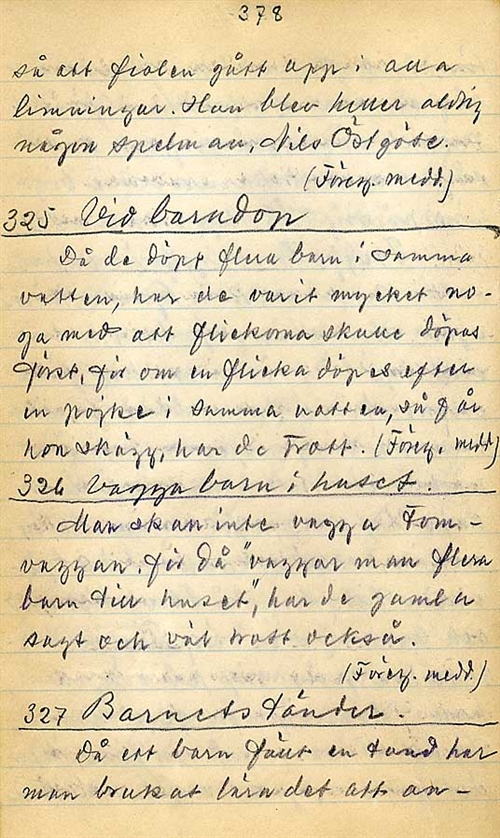 378
så att fiolen gått upp i alla
limningar. Han blev heller aldrig
någon spelman, Nils Östgöte.
(Föreg. medd.)
325 Vid barndop
Då de döpt flera barn i samma
vatten, har de varit mycket no-
ga med att flickorna skulle döpas
först, för om en flicka döpes efter
en pojke i samma vatten, så får
hon skägg, har de trott. (Föreg. medd)
326 Vagga barn i huset.
Man skan inte vagga tom-
vaggan, för då "vaggar man flera
barn till huset", har de gamla
sagt och väl trott också.
(Föreg. medd.)
327 Barnets tänder.
Då ett barn fällt en tand har
man brukat lära det att an-